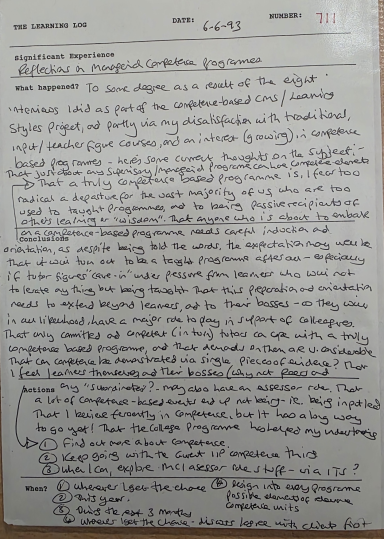 THE LEARNING LOG DATE: 6-6-93 NUMBER: 711
Significant Experience
Reflections on Managerial Competence Programmes
What happened? To some degree as a result of the eight
interviews I did as part of the competence-based CMS/Learning
Styles Project, and partly via my disatisfaction with traditional,
input/teacher figure courses, and an interest (growing), in competence
based programmes - here's some current thoughts on the subject;-
That just about any Supervisory/managerial programme can have competence elements
That a truly competence based programme is, I fear too
radical a departure for the vast majority of us who are too
used to taught programmes, and to being passive recipients of
others learning or "wisdom". That anyone who is about to embark
on a competence-based programme needs careful induction and
Conclusions
orientation, as despite being told the words, the expectation may well be
that it will turn out to be a taught programme after all - especially
if tutor figures 'cave-in' under pressure from learners who will not
tolerate anything but being taught. That this preparation and orientation
needs to extend beyond learners, and to their bosses - as they will
in all likelihood, have a major role to play in support of colleagues.
That only committed and competent (in turn) tutors can cope with a truly
competence based programme, and that demands on them are considerable
That can competence be demonstrated via single pieces of evidence? That
I feel learners themselves and their bosses (why not peers and
Actions any "subordinates"? - may also have an assessor role. That
a lot of competence-based events end up not being - i.e. being input led
That I believe fervently in Competence, but it has a long way
to go yet! That the College Programme has helped my understanding
① Find out more about competence.
② Keep going with the Guent IIP competence thing
③ When I can, explore MCI assessor role stuff - via ITS?
When? ① Whenever I get the chance ④ Design into every programme
② This year. possible elements of relevant
③ During the next 3 months competence units
④ Whenever I get the chance - discuss before with clients first